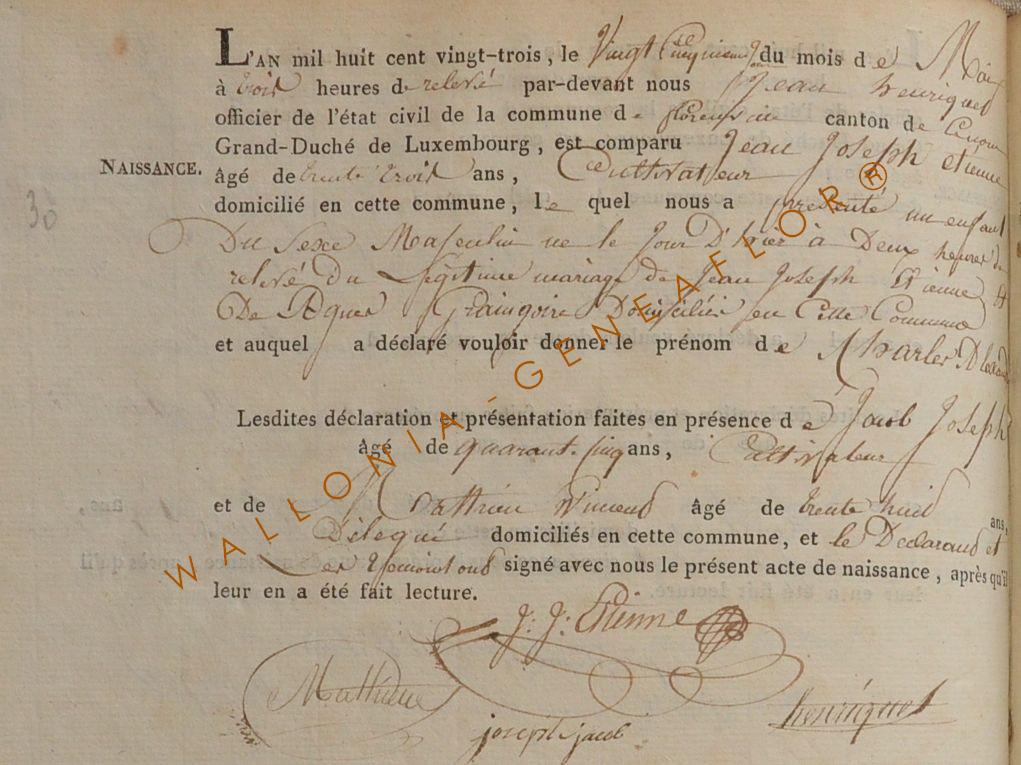 L'AN mil huit cent vingt-trois, le Vingt Cinqieme Jour du mois de Mai
à trois heures de relevé par-devant nous Jean henriquet
officier de l'état civil de la commune de florenville canton de
Grand-Duché de Luxembourg, est comparu Jean Joseph etienne
NAISSANCE.
âgé de trente trois ans, Cultivateur
domicilié en cette commune, le quel nous a presenté un enfant
Du Sexe Masculin ne le Jour D'hier à Deux heures de
relevé du Legitime mariage de Jean Joseph Etienne et
De Agnes domiciliés en Cette Commune
et auquel a déclaré vouloir donner le prénom de Charles
Lesdites déclaration et présentation faites en présence de Jacob Joseph
âgé de quarant cinq ans, Cultivateur
et de Mathieu âgé de trente huid ans,
domiciliés en cette commune, et le Declarand et
Les temoint ond signé avec nous le présent acte de naissance, après qu'il
leur en a été fait lecture.
J: J: Etienne
Mathieu
joseph jacob
henriquet
30
WALLONIA - GENEAFLOR ®